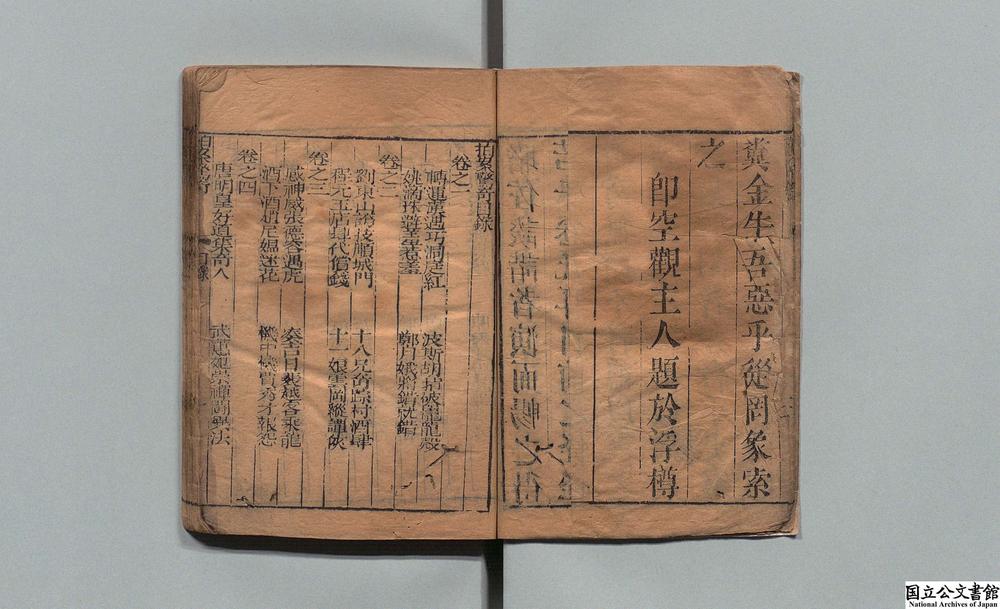 糞金牛吾惡乎從罔象索
之
即空觀主人題於浮樽
拍案驚奇目錄
卷之一
轉運漢遇巧洞庭紅　波斯胡指破鼉龍殼
姚滴珠避羞惹羞　鄭月娥將錯就錯
卷之二
劉東山誇技順城門　十八兄奇踪村酒肆
程元玉店肆代償錢　十一娘雲岡縱譚俠
卷之三
感神媒張德容遇虎　湊吉日裴越客乘龍
酒下酒趙尼媼迷花　機中機賈秀才報怨
卷之四
唐明皇好道集奇人　武惠妃崇禪鬬異法
拍案驚奇　目錄
国立公文書館
National Archives of Japan